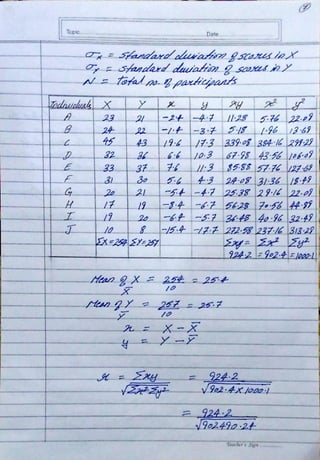 7
Topic
Date
σx = standard deviation of scores in X
σy = standard deviation of scores in Y
N = Total no. of participants
Individuals X Y x y xy x² y²
A 23 21 -2.4 -4.7 11.28 5.76 22.09
B 24 22 -1.4 -3.7 5.18 1.96 13.69
C 45 43 19.6 17.3 339.08 384.16 299.29
D 32 36 6.6 10.3 67.98 43.56 106.09
E 33 37 7.6 11.3 85.88 57.76 127.69
F 31 30 5.6 4.3 24.08 31.36 18.49
G 20 21 -5.4 -4.7 25.38 29.16 22.09
H 17 19 -8.4 -6.7 56.28 70.56 44.89
I 19 20 -6.4 -5.7 36.48 40.96 32.49
J 10 8 -15.4 -17.7 272.58 237.16 313.29
Σx=254 Σy=257 Σxy= Σx² Σy²
924.2 =902.4 =1000.1
Mean of X = 254 = 25.4
X̄ 10
Mean of Y = 257 = 25.7
Ȳ 10
x = X - X̄
y = Y - Ȳ
r = Σxy = 924.2
√Σx² Σy² √902.4 x 1000.1
= 924.2
√902490.24
Teacher's Sign